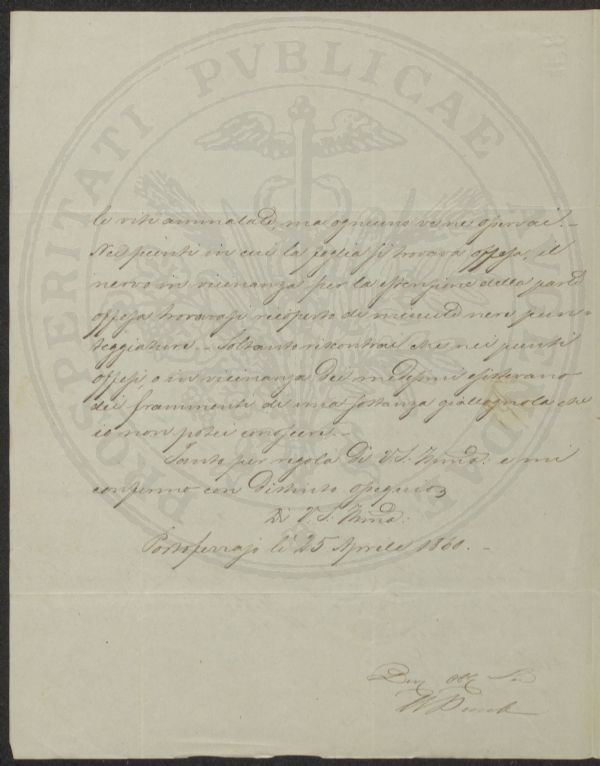 PROSPERITATI PVBLICAE AVGENDAE
le viti ammalate, ma ogneuno ve ne osservai. –
Nei punti in cui la foglia si trovava offesa, il
nervo in vicinanza per la estensione della parte
offesa trovavasi ricoperto di minute nere pun-
teggiature. – Soltanto riscontrai che nei punti
offesi o in vicinanza dei medesimi esistevano
dei frammenti di una sostanza giallognola che
io non potei conoscere. –
Tanto per regola di V. S. Illma. e mi
confermo con distinto ossequio
Di V. S. Illma.
Portoferrajo li 25 Aprile 1860. –
Dev Obb Se